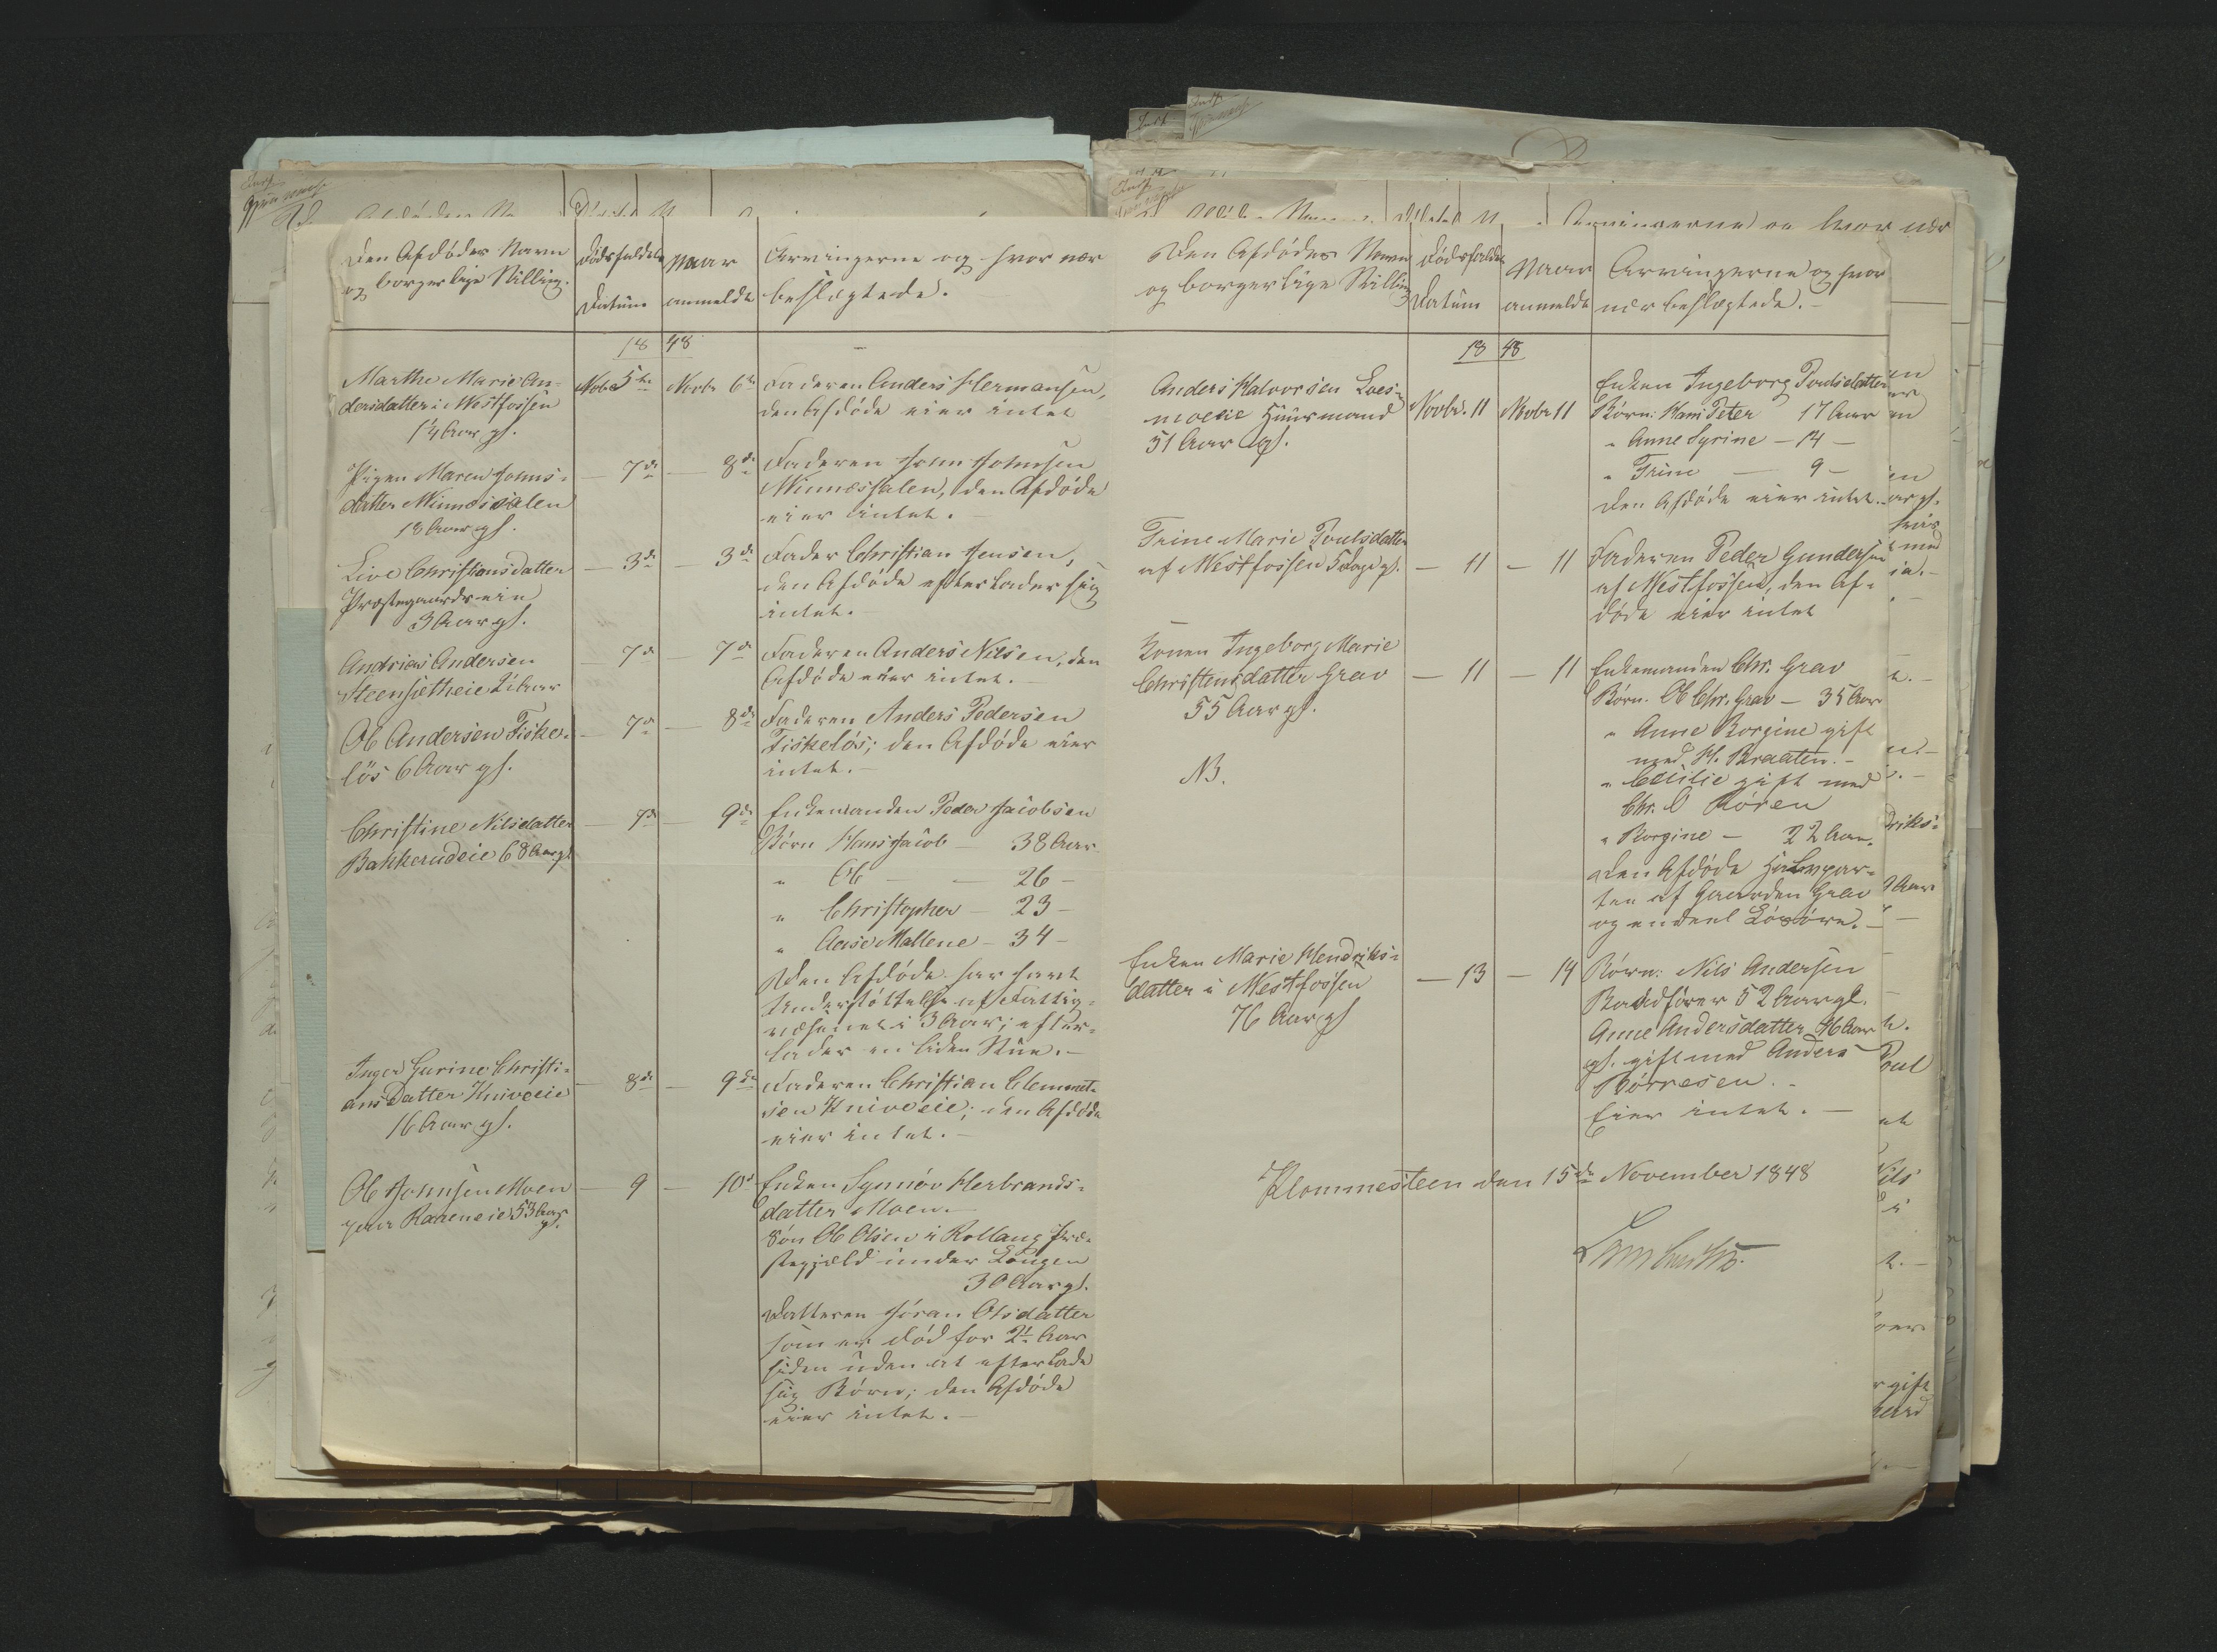 Den Afdødes Navn
og borgerlige Stilling.
Dødsfaldets
Datum
Naar
anmeldt
Arvingerne og hvor nær
beslægtede.
18 48
Marthe Marie An-
dersdatter i Westfossen
1 1/4 Aar gl.
Novbr 5te
Novbr 6te
Faderen Anders Hermansen,
den Afdøde eier intet
Pigen Maren Johns-
datter Minnessalen
18 Aar gl.
— 7de
— 8de
Faderen John Johnsen
Minnessalen, den Afdøde
eier intet. —
Live Christiansdatter
Præstegaardseie
3 Aar gl.
— 3de
— 3de
Fader Christian Jensen,
den Afdøde efterlader sig
intet. —
Andreas Andersen
Steensetheie
7de
— 7de
Faderen Anders Nilsen, den
Afdøde eier intet. —
Ole Andersen Fiske-
løs 6 Aar gl.
— 7de
— 8de
Faderen Anders Pedersen
Fiskeløs; den Afdøde eier
intet. —
Christine Nilsdatter
Bakkerudeie 68 Aar gl
— 7de
— 9de
Enkemanden Peder Jacobsen
Børn Hans Jacob — 38 Aar
" Ole — — 26 —
" Christopher — 23 —
" Aase Mallene — 34 —
Den Afdøde har havt
Understøttelse af Fattig-
væsenet i 3 Aar; efter-
lader en liden Stue. —
Inger Gurine Christi-
ans Datter Kniveeie
16 Aar gl.
— 8de
— 9de
Faderen Christian Clemmet-
sen Kniveeie; den Afdøde
eier intet. —
Ole Johnsen Moen
53 Aar
gl.
— 9
— 10de
Enken Synnøv Herbrands-
datter Moen. —
Søn Ole Olsen i Rollaug Præ-
stegjeld under Lougen
30 Aar gl.
Datteren Jøran Olsdatter
som er død for 2 1/2 Aar
siden uden at efterlade
sig Børn; den Afdøde
eier intet. —
Den Afdødes Navn
og borgerlige Stilling
Dødsfaldets
Datum
Naar
anmeldt
Arvingerne og hvor
nær beslægtede. —
18 48
Anders Halvorsen Loes-
moeeie Huusmand
51 Aar gl.
Novbr. 11
Novbr 11
Enken Ingeborg Poulsdatter
Børn: Hans Peter 17 Aar
" Anne Syrine — 14 —
" Trine — 9 —
den Afdøde eier intet. —
Trine Marie Poulsdatter
af Westfossen 5 Dage gl.
— 11
— 11
Faderen Peder Gundersen
af Westfossen, den Af-
døde eier intet
Konen Ingeborg Marie
Christensdatter Grav
55 Aar gl.
NB.
— 11
— 11
Enkemanden Chr. Grav
Børn. Ole Chr. Grav — 35 Aar
" Anne Borgine gift
med H. Braaten. —
" Cecilie gift med
Chr. O Røren
" Borgine — 22 Aar.
Den Afdøde Halvpar-
ten af Gaarden Grav
og endeel Løsøre. —
Enken Marie Hendriks-
datter i Westfossen
76 Aar gl
— 13
— 14
Børn: Nils Andersen
Baadfører 52 Aar gl.
Anne Andersdatter 46 Aar
gl. gift med Anders
Børresen. —
Eier intet. —
Plommesteen den 15de November 1848